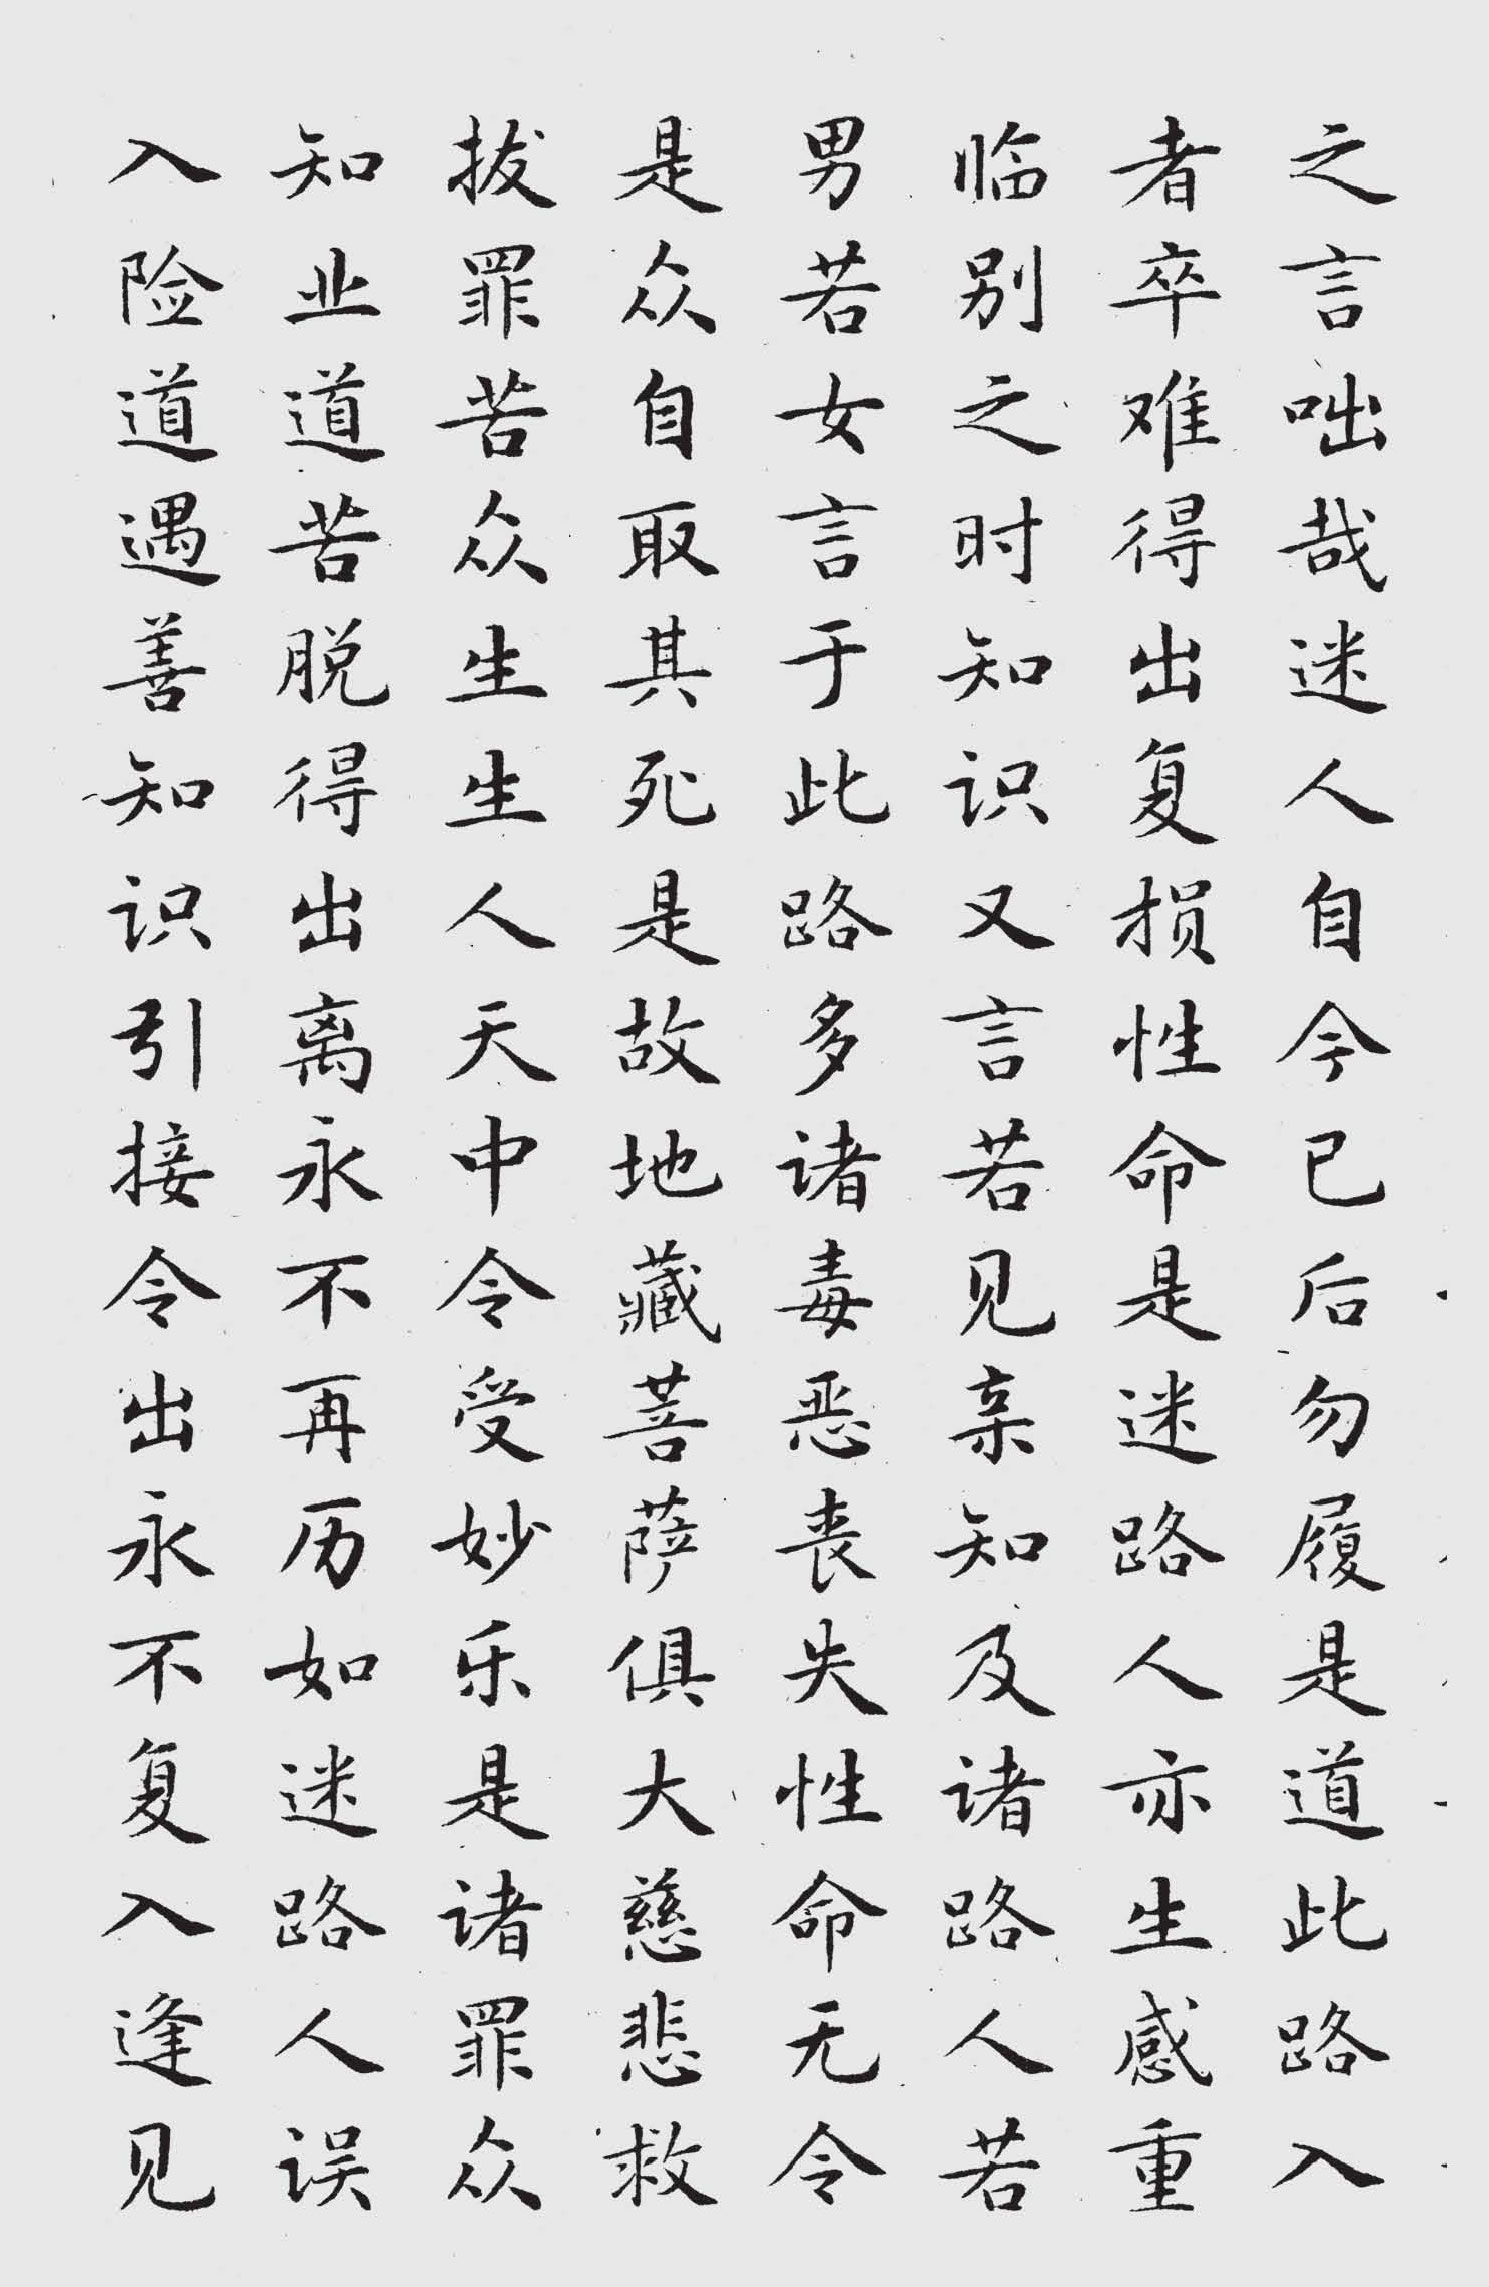 之言咄哉迷人自今已后勿履是道此路入
者卒难得出复损性命是迷路人亦生感重
临别之时知识又言若见亲知及诸路人若
男若女言于此路多诸毒恶丧失性命无令
是众自取其死是故地藏菩萨俱大慈悲救
拔罪苦众生生人天中令受妙乐是诸罪众
知业道苦脱得出离永不再历如迷路人误
入险道遇善知识引接令出永不复入逢见